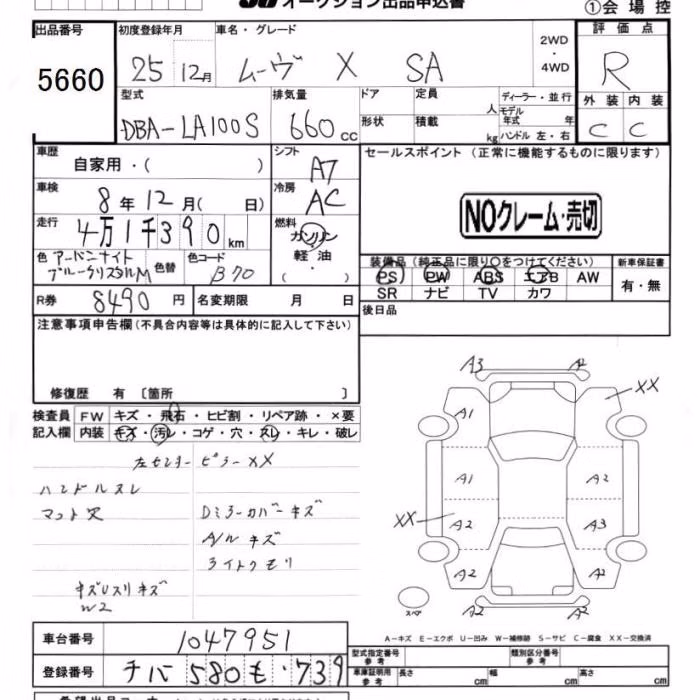 オークション出品申込書
①会場控
出品番号 初度登録年月 車名・グレード 評価点
5660 25 12月 ムーヴ X SA 2WD・4WD R
型式 排気量 ドア 定員 人 ディーラー・並行 外装 内装
DBA-LA100S 660cc 形状 積載 kg モデル年式 年 ハンドル 左・右 C C
車歴 シフト セールスポイント(正常に機能するものに限ります)
自家用・( ) A7
車検 冷房
8年12月( 日) AC NOクレーム・売切
走行 燃料
4万1千390km ガソリン
軽油
・
( )
色 アーバンナイトブルークリスタルM 色替 色コード B70
装備品(純正品に限り○をつけてください) 新車保証書
PS PW ABS エアB AW 有・無
SR ナビ TV カワ
R券 8490円 名変期限 月 日 後日品
注意事項申告欄(不具合内容等は具体的に記入して下さい)
修復歴 有 〔箇所 〕
検査員 FW キズ・飛石・ヒビ割・リペア跡・×要
記入欄 内装 キズ・汚レ・コゲ・穴・スレ・キレ・破レ
左センターピラーXX
ハンドルスレ
マット穴 Dミラーカバーキズ
A/Wキズ
ライトクモリ
キズUスリキズ
W2
A3 A2
XX
A1
A1 A2
XX A2 A3
A2 A2
A2 A2
スペア
A-キズ E-エクボ U-凹み W-補修跡 S-サビ C-腐食 XX-交換済
車台番号 1047951
型式指定番号 参考 類別区分番号 参考
登録番号 チバ 580 も・739
車庫証明用 参考 長さ cm 幅 cm 高さ cm